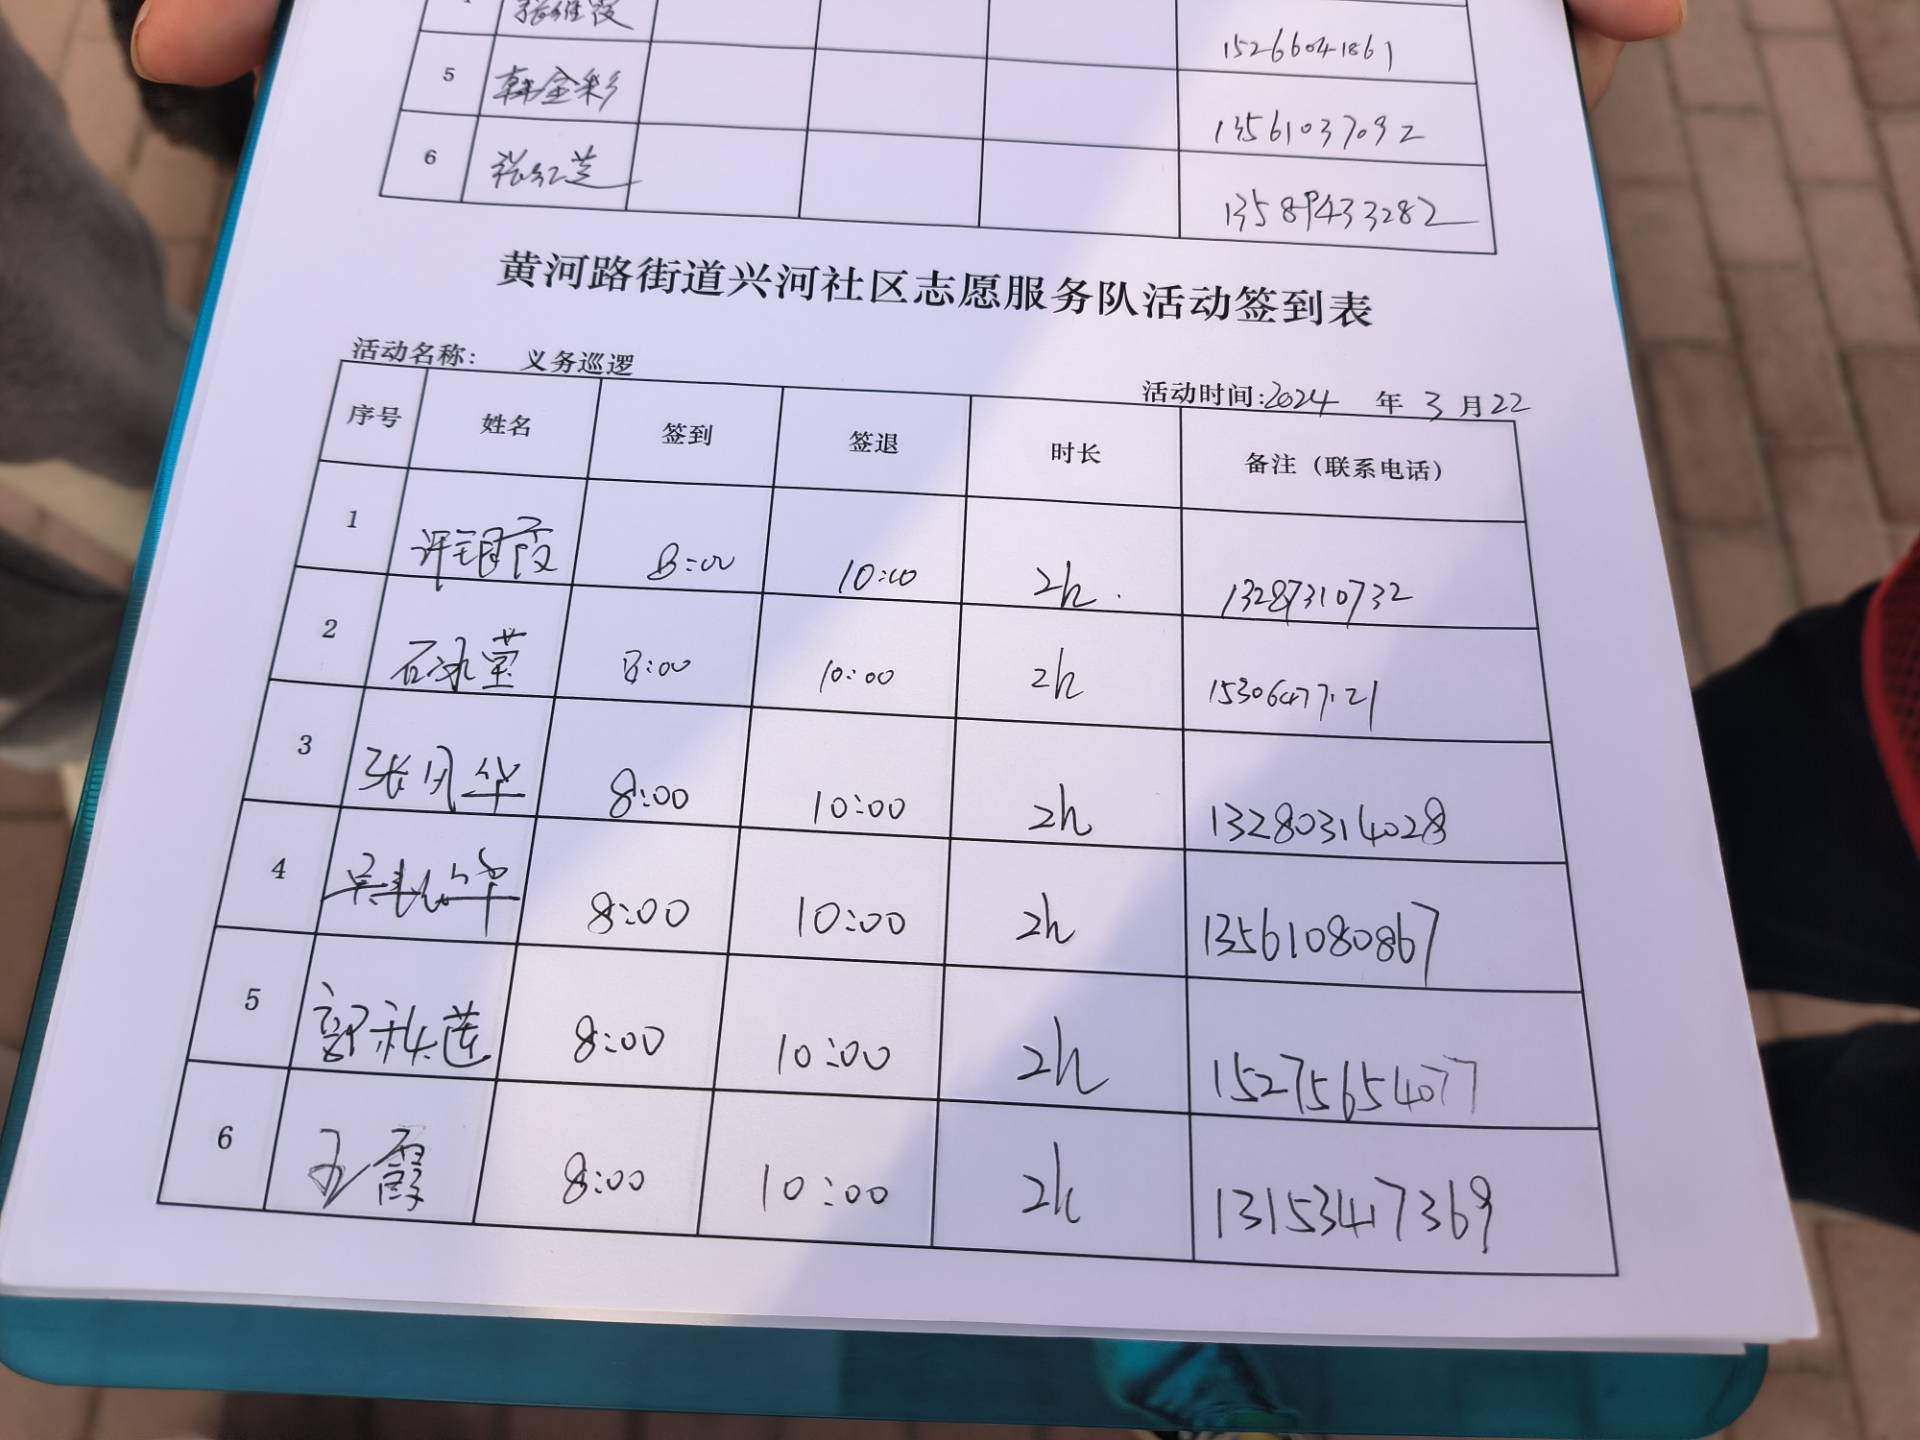 15266041861
5 韩金彩 13561037092
6 张红芝 13589433282
黄河路街道兴河社区志愿服务队活动签到表
活动名称: 义务巡逻
活动时间:2024 年 3 月 22
序号 姓名 签到 签退 时长 备注（联系电话）
1 8:00 10:00 2h. 13287310732
2 8:00 10:00 2h
3 张月华 8:00 10:00 2h 13280314028
4 8:00 10:00 2h 13561080867
5 郭秋莲 8:00 10:00 2h 15275654077
6 王霞 8:00 10:00 2h 13153417369